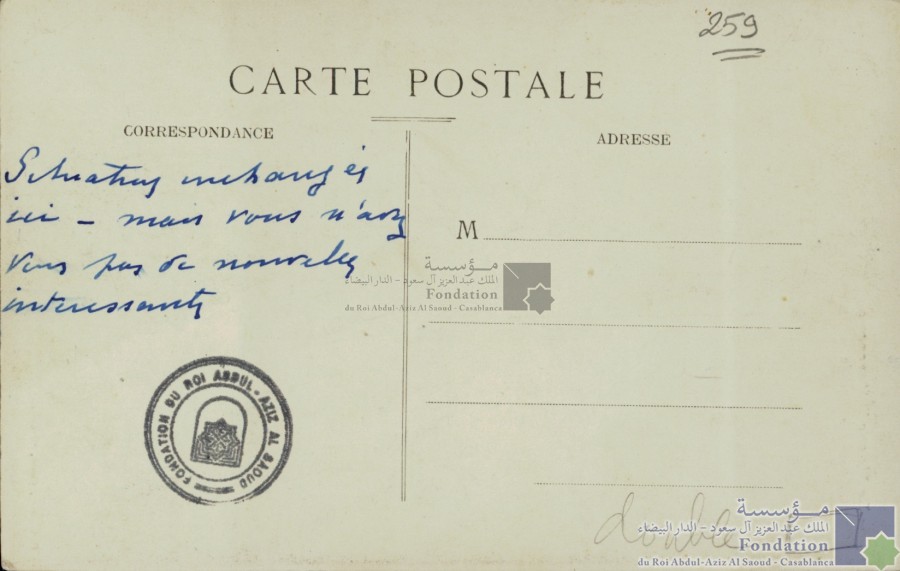 259
CARTE POSTALE
CORRESPONDANCE
ADRESSE
Situation inchangée
ici – mais vous n'avez
vous pas de nouvelles
intéressantes
M
مؤسسة
الملك عبد العزيز آل سعود - الدار البيضاء
Fondation
du Roi Abdul-Aziz Al Saoud - Casablanca
FONDATION DU ROI ABDUL-AZIZ AL SAOUD
double
مؤسسة
الملك عبد العزيز آل سعود - الدار البيضاء
Fondation
du Roi Abdul-Aziz Al Saoud - Casablanca